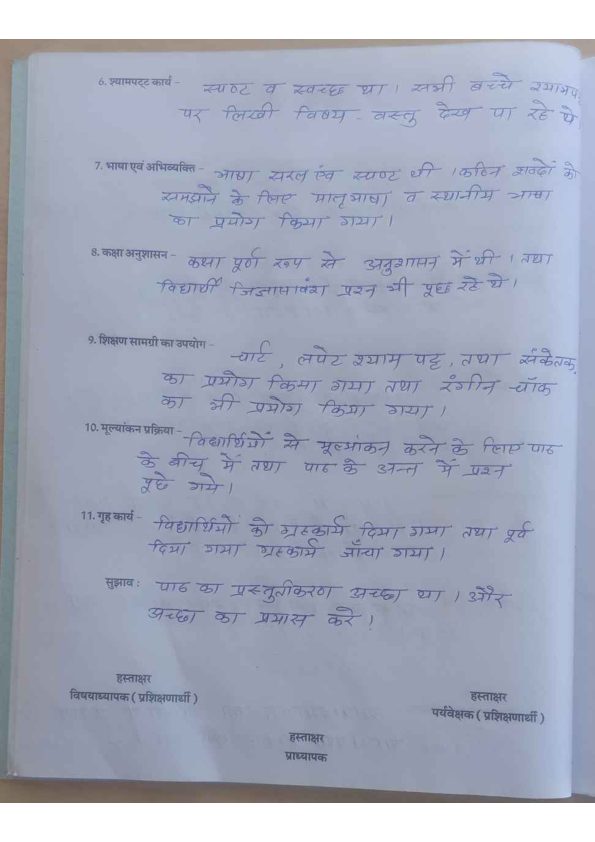 6. श्यामपट्ट कार्य - स्पष्ट व स्वच्छ था। सभी बच्चे श्यामप
पर लिखी विषय - वस्तु देख पा रहे थे
7. भाषा एवं अभिव्यक्ति - भाषा सरल एंव स्पष्ट थी। कठिन शब्दों को
समझाने के लिए मातृभाषा व स्थानीय भाषा
का प्रयोग किया गया।
8. कक्षा अनुशासन - कक्षा पूर्ण रूप से अनुशासन में थी। तथा
विद्यार्थी जिज्ञासावंश प्रश्न भी पूछ रहे थे।
9. शिक्षण सामग्री का उपयोग -
चार्ट, लपेट श्याम पट्ट, तथा संकेतक
का प्रयोग किया गया तथा रंगीन चॉक
का भी प्रयोग किया गया।
10. मूल्यांकन प्रक्रिया - विद्यार्थियों से मूल्यांकन करने के लिए पाठ
के बीच में तथा पाठ के अन्त में प्रश्न
पूछे गये।
11. गृह कार्य - विद्यार्थियों को ग्रहकार्य दिया गया तथा पूर्व
दिया गया ग्रहकार्य जाँचा गया।
सुझाव : पाठ का प्रस्तुतीकरण अच्छा था। और
अच्छा का प्रयास करे।
हस्ताक्षर
विषयाध्यापक ( प्रशिक्षणार्थी )
हस्ताक्षर
पर्यवेक्षक ( प्रशिक्षणार्थी )
हस्ताक्षर
प्राध्यापक